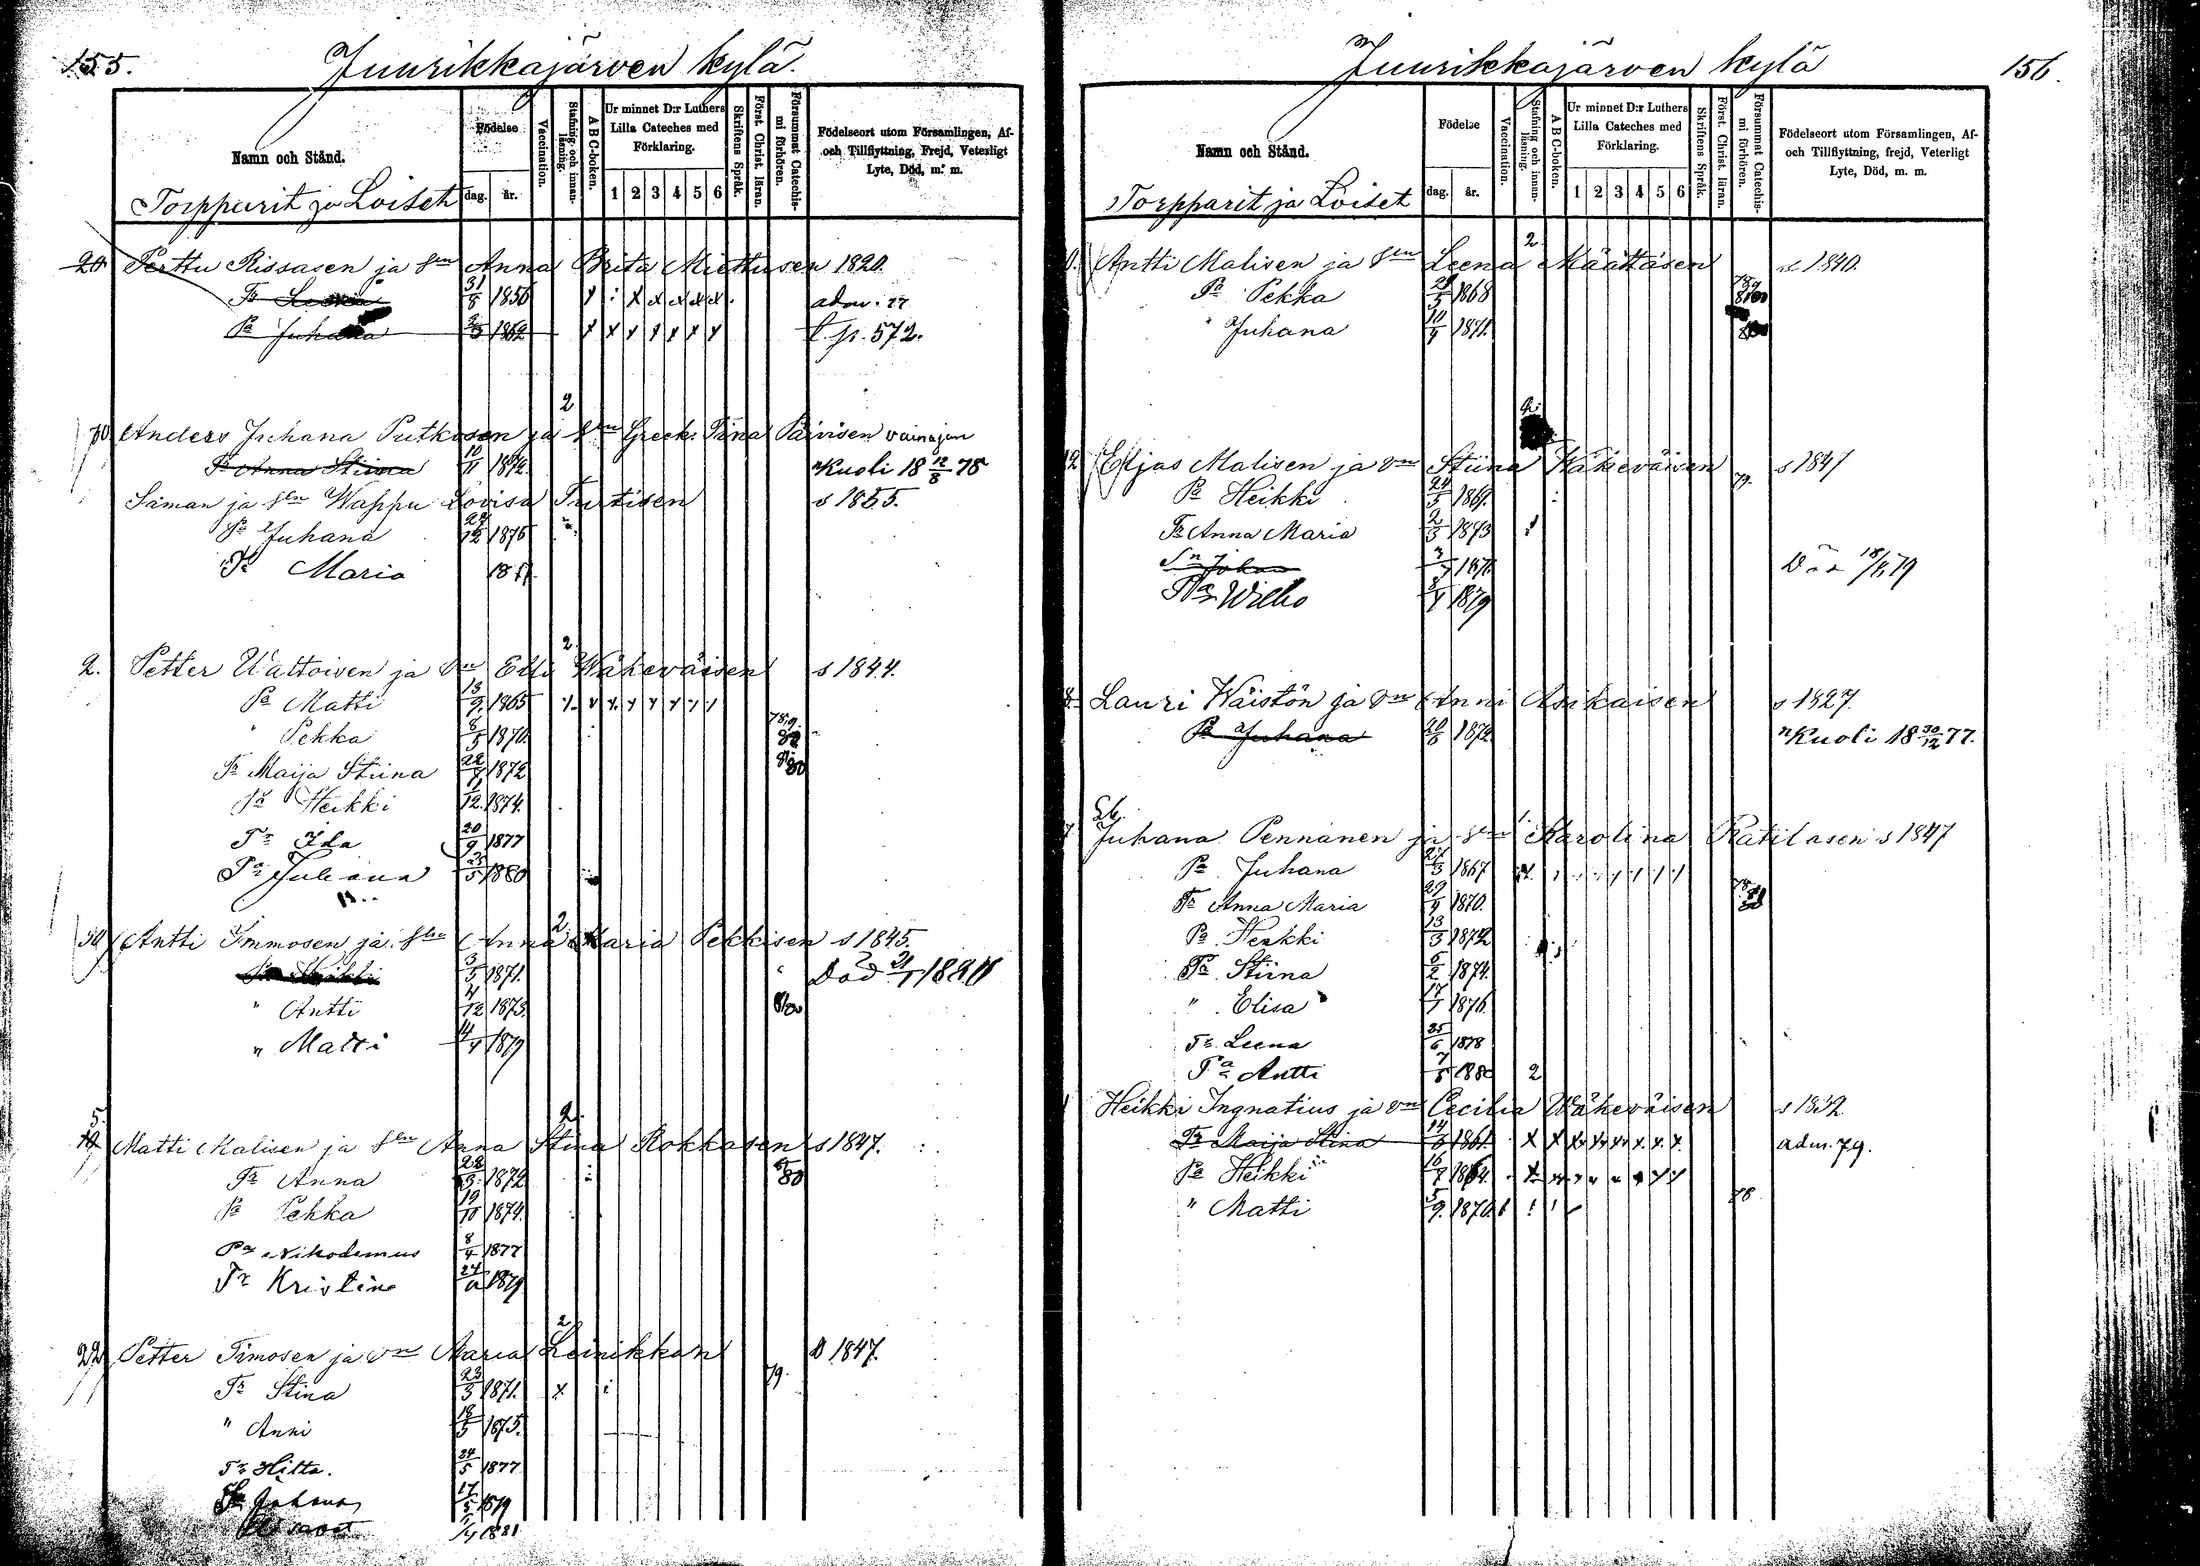 155.
Juurikkajärven kylä.
Namn och Stånd.
Födelse
dag. år.
Vaccination.
Stafning- och innan-läsning.
A B C-boken.
Ur minnet D:r Luthers Lilla Cateches med Förklaring.
1 2 3 4 5 6
Skriftens Språk.
Först. Christ. läran.
Försummat Catechismi förhören.
Födelseort utom Församlingen, Af- och Tillflyttning, Frejd, Veterligt Lyte, Död, m. m.
Torpparit ja Loiset
20 Perttu Rissasen ja sen Anna Brita Miettusen 1820.
31/8 1856 adm. 77
Pa Juhana 1862 l. p. 572.
2
Anders Juhana Putkosen ja sen Greeta Tina Päivisen vainajan
Tr Anna Stiina 10/11 1872. Kuoli 18 12/8 78
Saman ja sen Wappu Lovisa Turtisen s 1855.
Pa Juhana 1876
Tr Maria 18
2
2. Petter Wattoisen ja vn Elli Wäkeväisen s 1844.
Pa Matti 13/9 1865
" Pekka 8/5 1870. 78.9.
Tr Maija Stiina 22/ 1872
Pa Heikki 1/12 1874.
Tr Ida 20/9 1877
Pa Juliana 23/5 1880
2
Antti Immosen ja sen Anna Maria Pekkisen s 1845.
Heikki 3/5 1871. Död 21/1 1880
" Antti 4/12 1873.
" Matti 14/4 1879
2
5. Matti Malisen ja sen Anna Stina Rokkasen s 1847.
Tr Anna 22/3 1872
Pa Pekka 19/10 1874.
Pa Nikodemus 8/4 1877
Tr Kristina 24/ 1879
2
22 Petter Timosen ja vn Maria Leinikkan s 1847.
Tr Stina 23/3 1871. 79.
" Anni 18/5 1875.
Tr Hilta. 24/5 1877
Juhana 17/5 1879
1881
Juurikkajärven kylä
156.
Namn och Stånd.
Födelse
dag. år.
Vaccination.
Stafning och innan-läsning.
A B C-boken.
Ur minnet D:r Luthers Lilla Cateches med Förklaring.
1 2 3 4 5 6
Skriftens Språk.
Först. Christ. läran.
Försummat Catechismi förhören.
Födelseort utom Församlingen, Af- och Tillflyttning, frejd, Veterligt Lyte, Död, m. m.
Torpparit ja Loiset
2
Antti Malisen ja sen Leena Määttäsen s 1840.
Pa Pekka 1868
" Juhana 10/ 1871.
Eljas Malisen ja vn Stiina Wäkeväisen s 1847
Pa Heikki 24/5 1869. 79.
Tr Anna Maria 2/3 1873
Sn Johan 1876 Död 18/ 79
Pa Wilho 1879
Lauri Wäistön ja vn Anni Asikaisen s 1827.
Pa Juhana 20/8 1872 Kuoli 18 30/12 77.
Juhana Pennanen ja sen Karolina Ratilasen s 1847
Pa Juhana 27/3 1867
Tr Anna Maria 29/ 1870.
Pa Heikki 13/3 1872
Tr Stiina 6/2 1874.
" Elisa 17/1 1876.
Tr Leena 25/6 1878
Pa Antti 7/5 1880 2
Heikki Ingnatius ja vn Cecilia Wäkeväisen s 1832
Tr Maija Stina 14/ 1861 adm. 79.
Pa Heikki 16/ 1864.
" Matti 5/9 1870 78